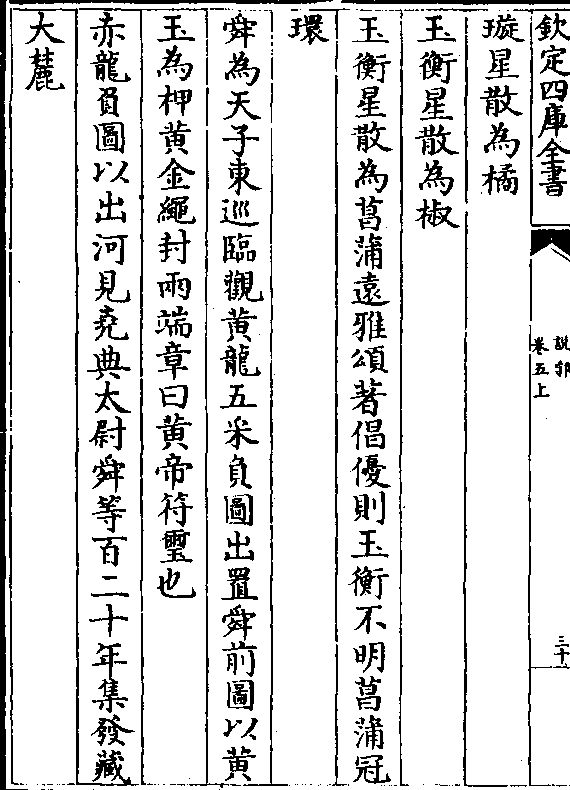 欽定四庫全書
說郛
卷五上
三十
璇星散為橘
玉衡星散為椒
玉衡星散為菖蒲遠雅頌著倡優則玉衡不明菖蒲冠
環
舜為天子東巡臨觀黄龍五采負圖出置舜前圖以黄
玉為柙黄金繩封兩端章曰黄帝符璽也
赤龍負圖以出河見堯典太尉舜等百二十年集發藏
大麓